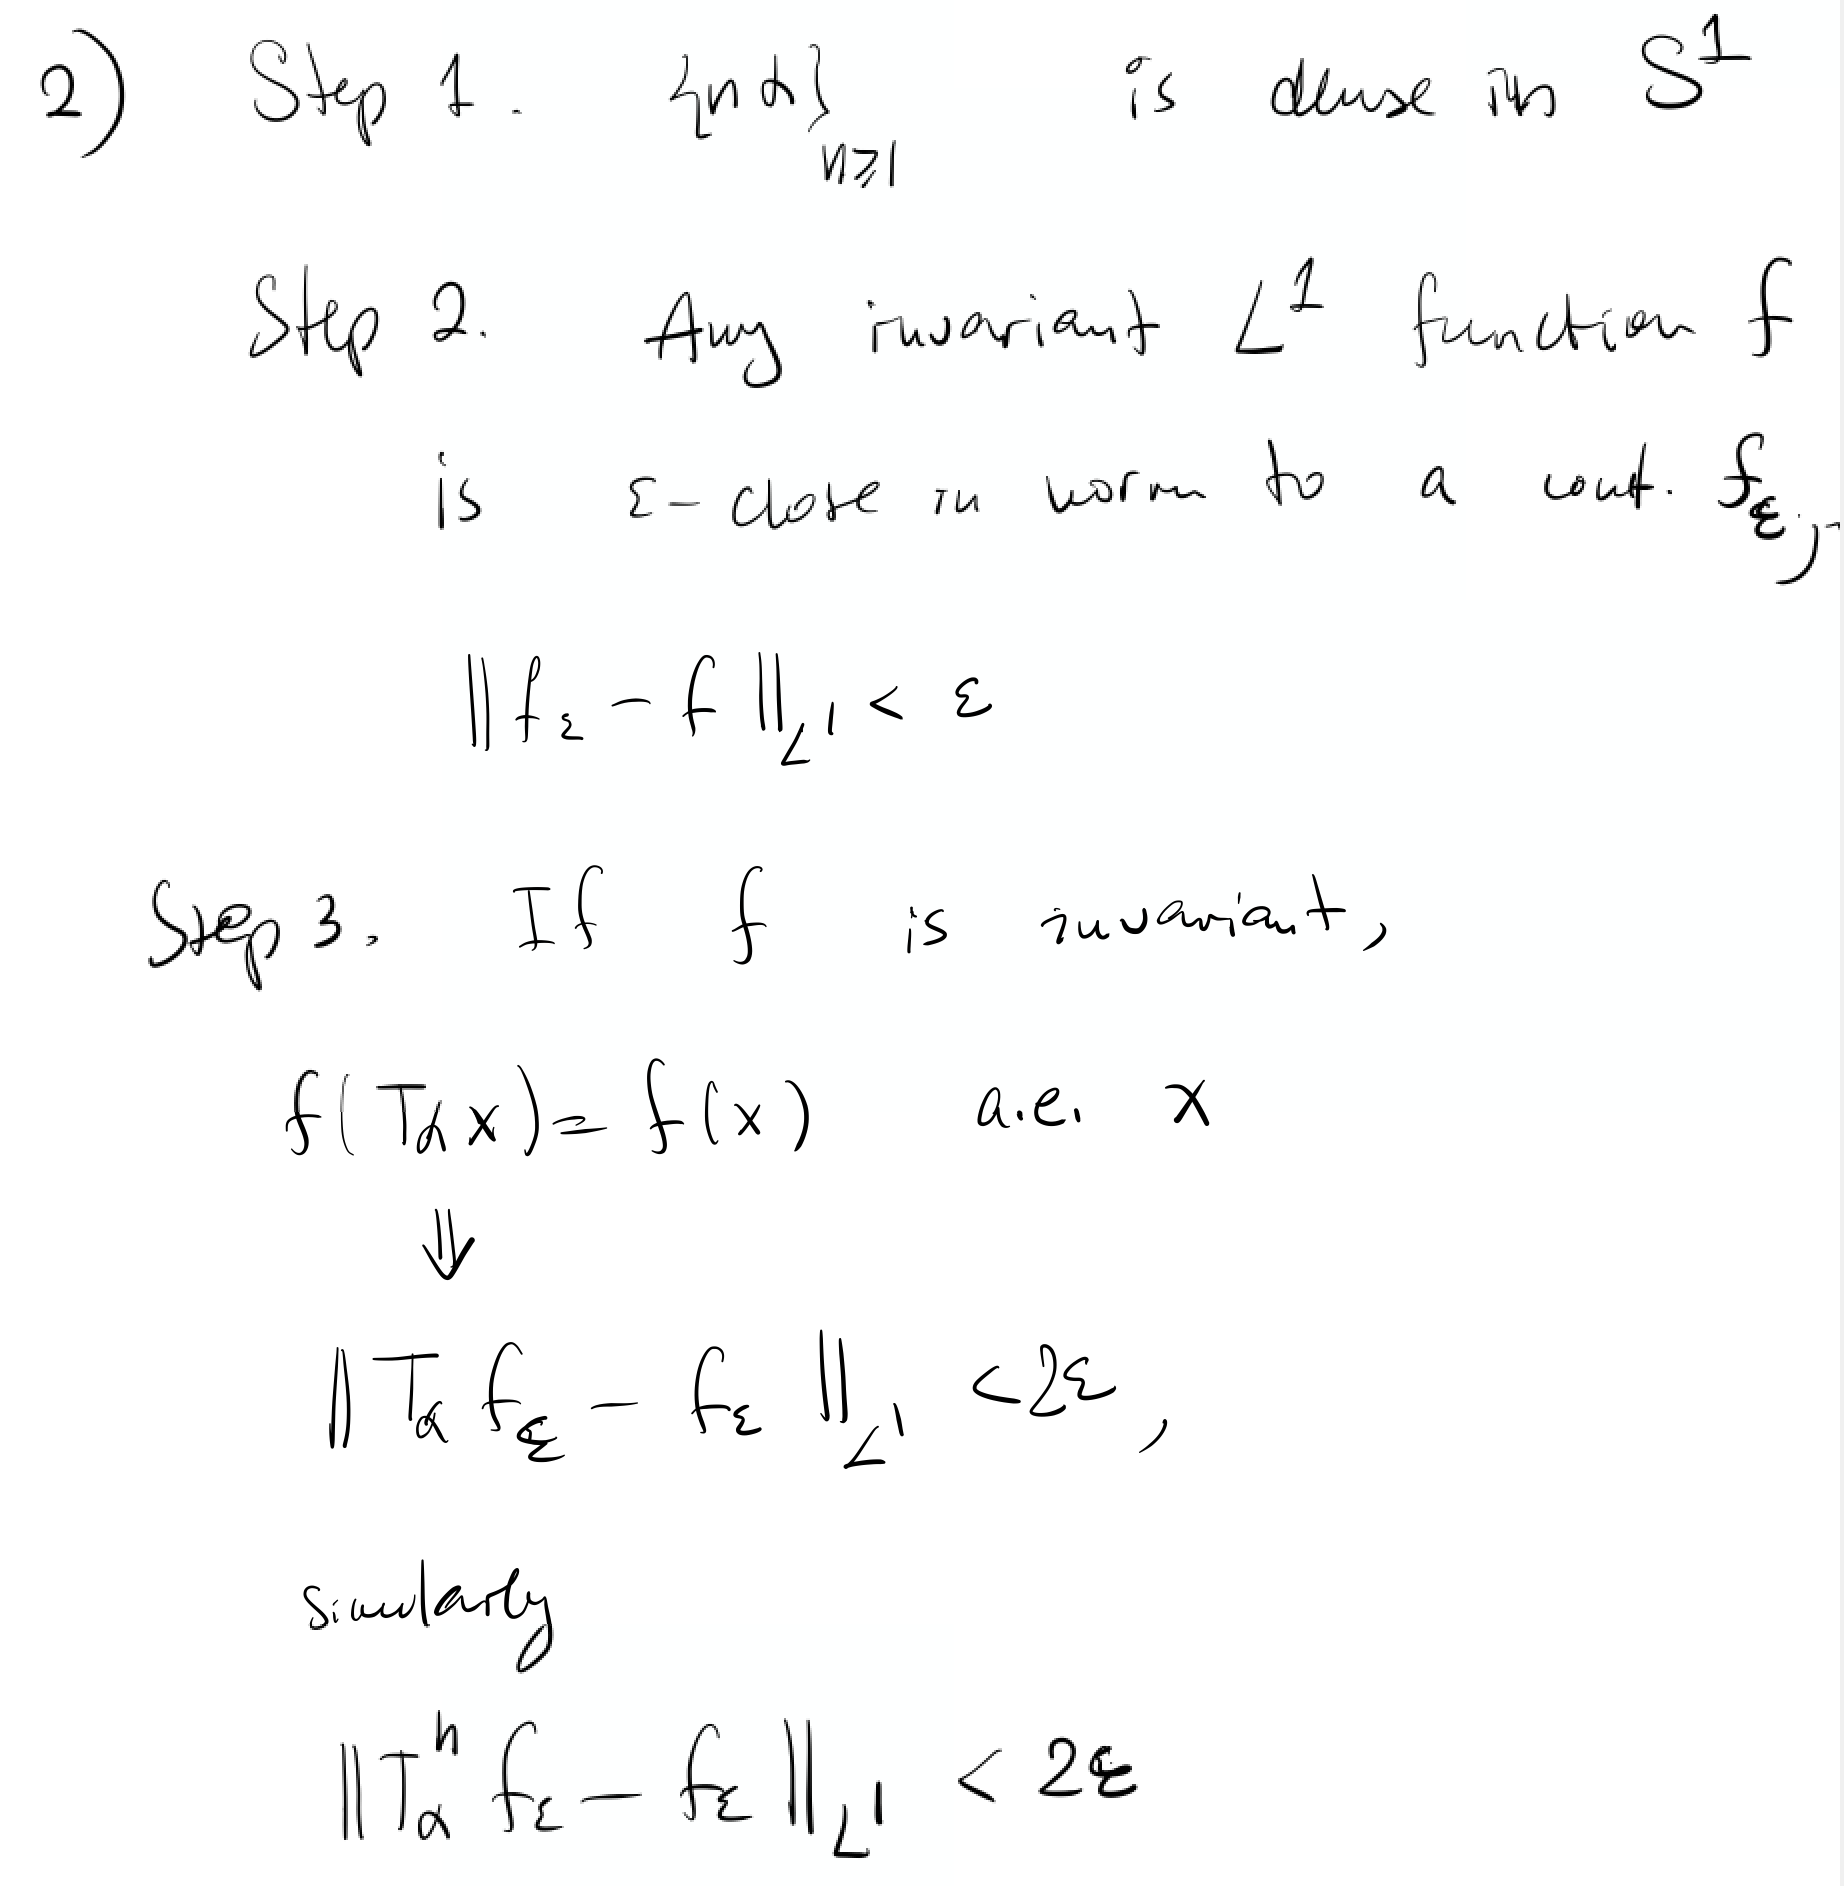 2) Step 1. {nα}_{n≥1} is dense in S^1
Step 2. Any invariant L^1 function f
is ε-close in norm to a cont. f_ε,
||f_ε - f||_{L^1} < ε
Step 3. If f is invariant,
f(T_α x) = f(x) a.e. x
⇓
||T_α f_ε - f_ε||_{L^1} < 2ε,
similarly
||T_α^n f_ε - f_ε||_{L^1} < 2ε